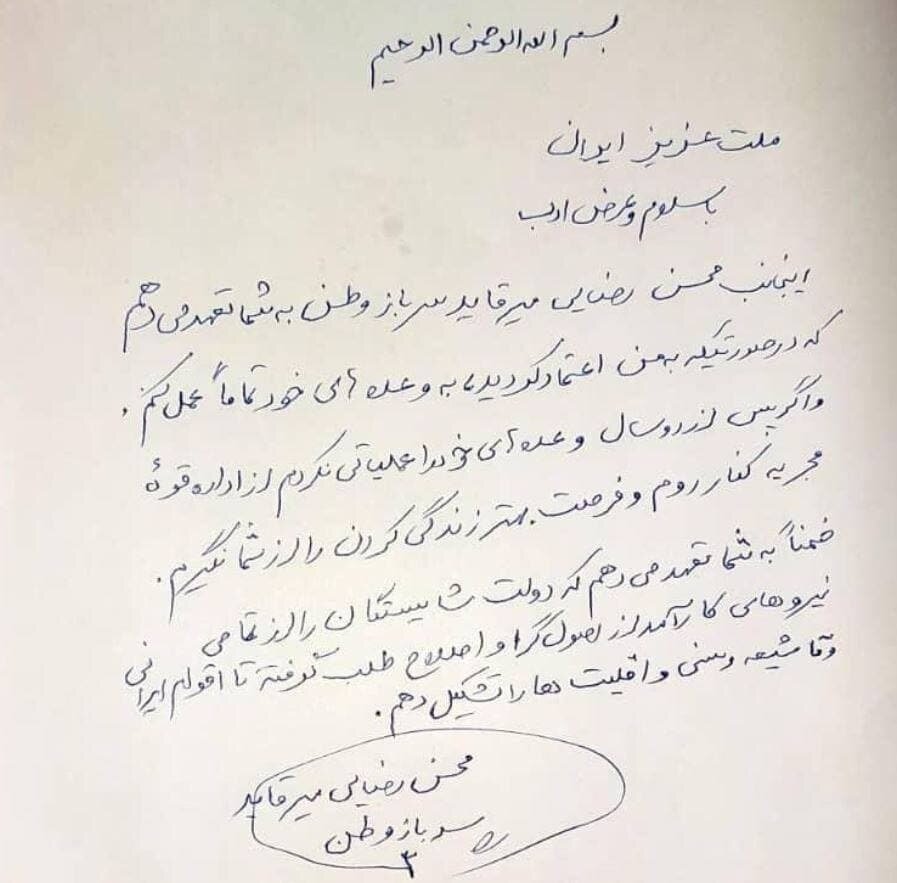 بسم الله الرحمن الرحیم
ملت عزیز ایران
با سلام و عرض ادب
اینجانب محسن رضایی میرقاید سرباز وطن به شما تعهد می دهم
که در صورتیکه به من اعتماد کردید، به وعده های خود تماماً عمل کنم.
و اگر پس از دو سال وعده های خود را عملیاتی نکردم از اداره قوهٔ
مجریه کنار روم و فرصت بهتر زندگی کردن را از شما نگیرم.
ضمناً به شما تعهد می دهم که دولت شایستگان را از تمامی
نیروهای کارآمد از اصول گرا و اصلاح طلب گرفته تا اقوام ایرانی
و تا شیعه و سنی و اقلیت ها را تشکیل دهم.
محسن رضایی میرقاید
سرباز وطن